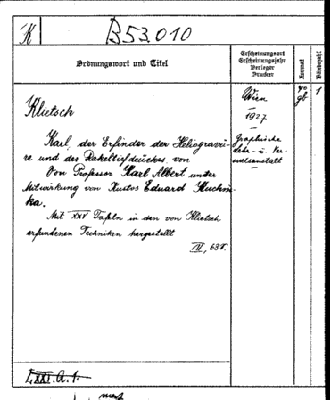 K
B53.010
Ordnungswort und Titel
Erscheinungsort
Erscheinungsjahr
Verleger
Drucker
Format
Bändezahl
Klietsch
Karl, der Erfinder der Heliogravü-
re und des Rakeltiefdruckes. von
Von Professor Karl Albert unter
Mitwirkung von Kustos Eduard Kuchin-
ka.
Mit XXV Tafeln in den von Klietsch
erfundenen Techniken hergestellt
IV, 63 S.
Wien
1927
Graphische
Lehr- u. Ver-
suchsanstalt
4°
gb
1